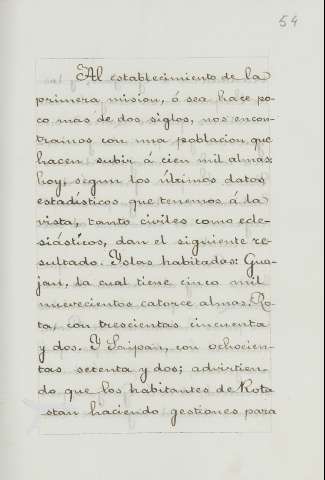 54
Al establecimiento de la
primera mision, ó sea hace po-
co mas de dos siglos, nos encon-
tramos con una poblacion que
hacen subir á cien mil almas;
hoy, segun los últimos datos
estadísticos que tenemos á la
vista, tanto civiles como ecle-
siásticos, dan el siguiente re-
sultado. Yslas habitadas: Gua-
jan, la cual tiene cinco mil
nuevecientos catorce almas. Ro-
ta, con trescientas cincuenta
y dos. Y Saipan, con ochocien-
tas setenta y dos; advirtien-
do que los habitantes de Rota
stan haciendo gestiones para